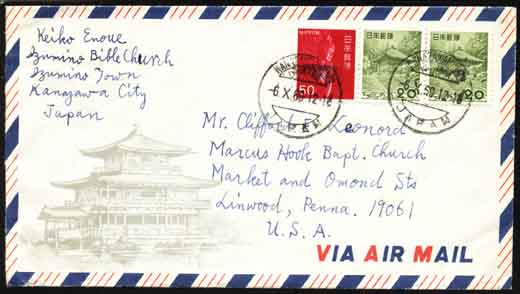 Keiko Enoue
Izumino Bible Church
Izumino Town
Kanazawa City
Japan
NIPPON
日本郵便
50
日本郵便
20
日本郵便
20
-6.X.69.12-18
JAPAN
JAPAN
Mr. Clifford E. Leonord
Marcus Hook Bapt. Church
Market and Omond Sts
Linwood, Penna. 19061
U.S.A.
VIA AIR MAIL